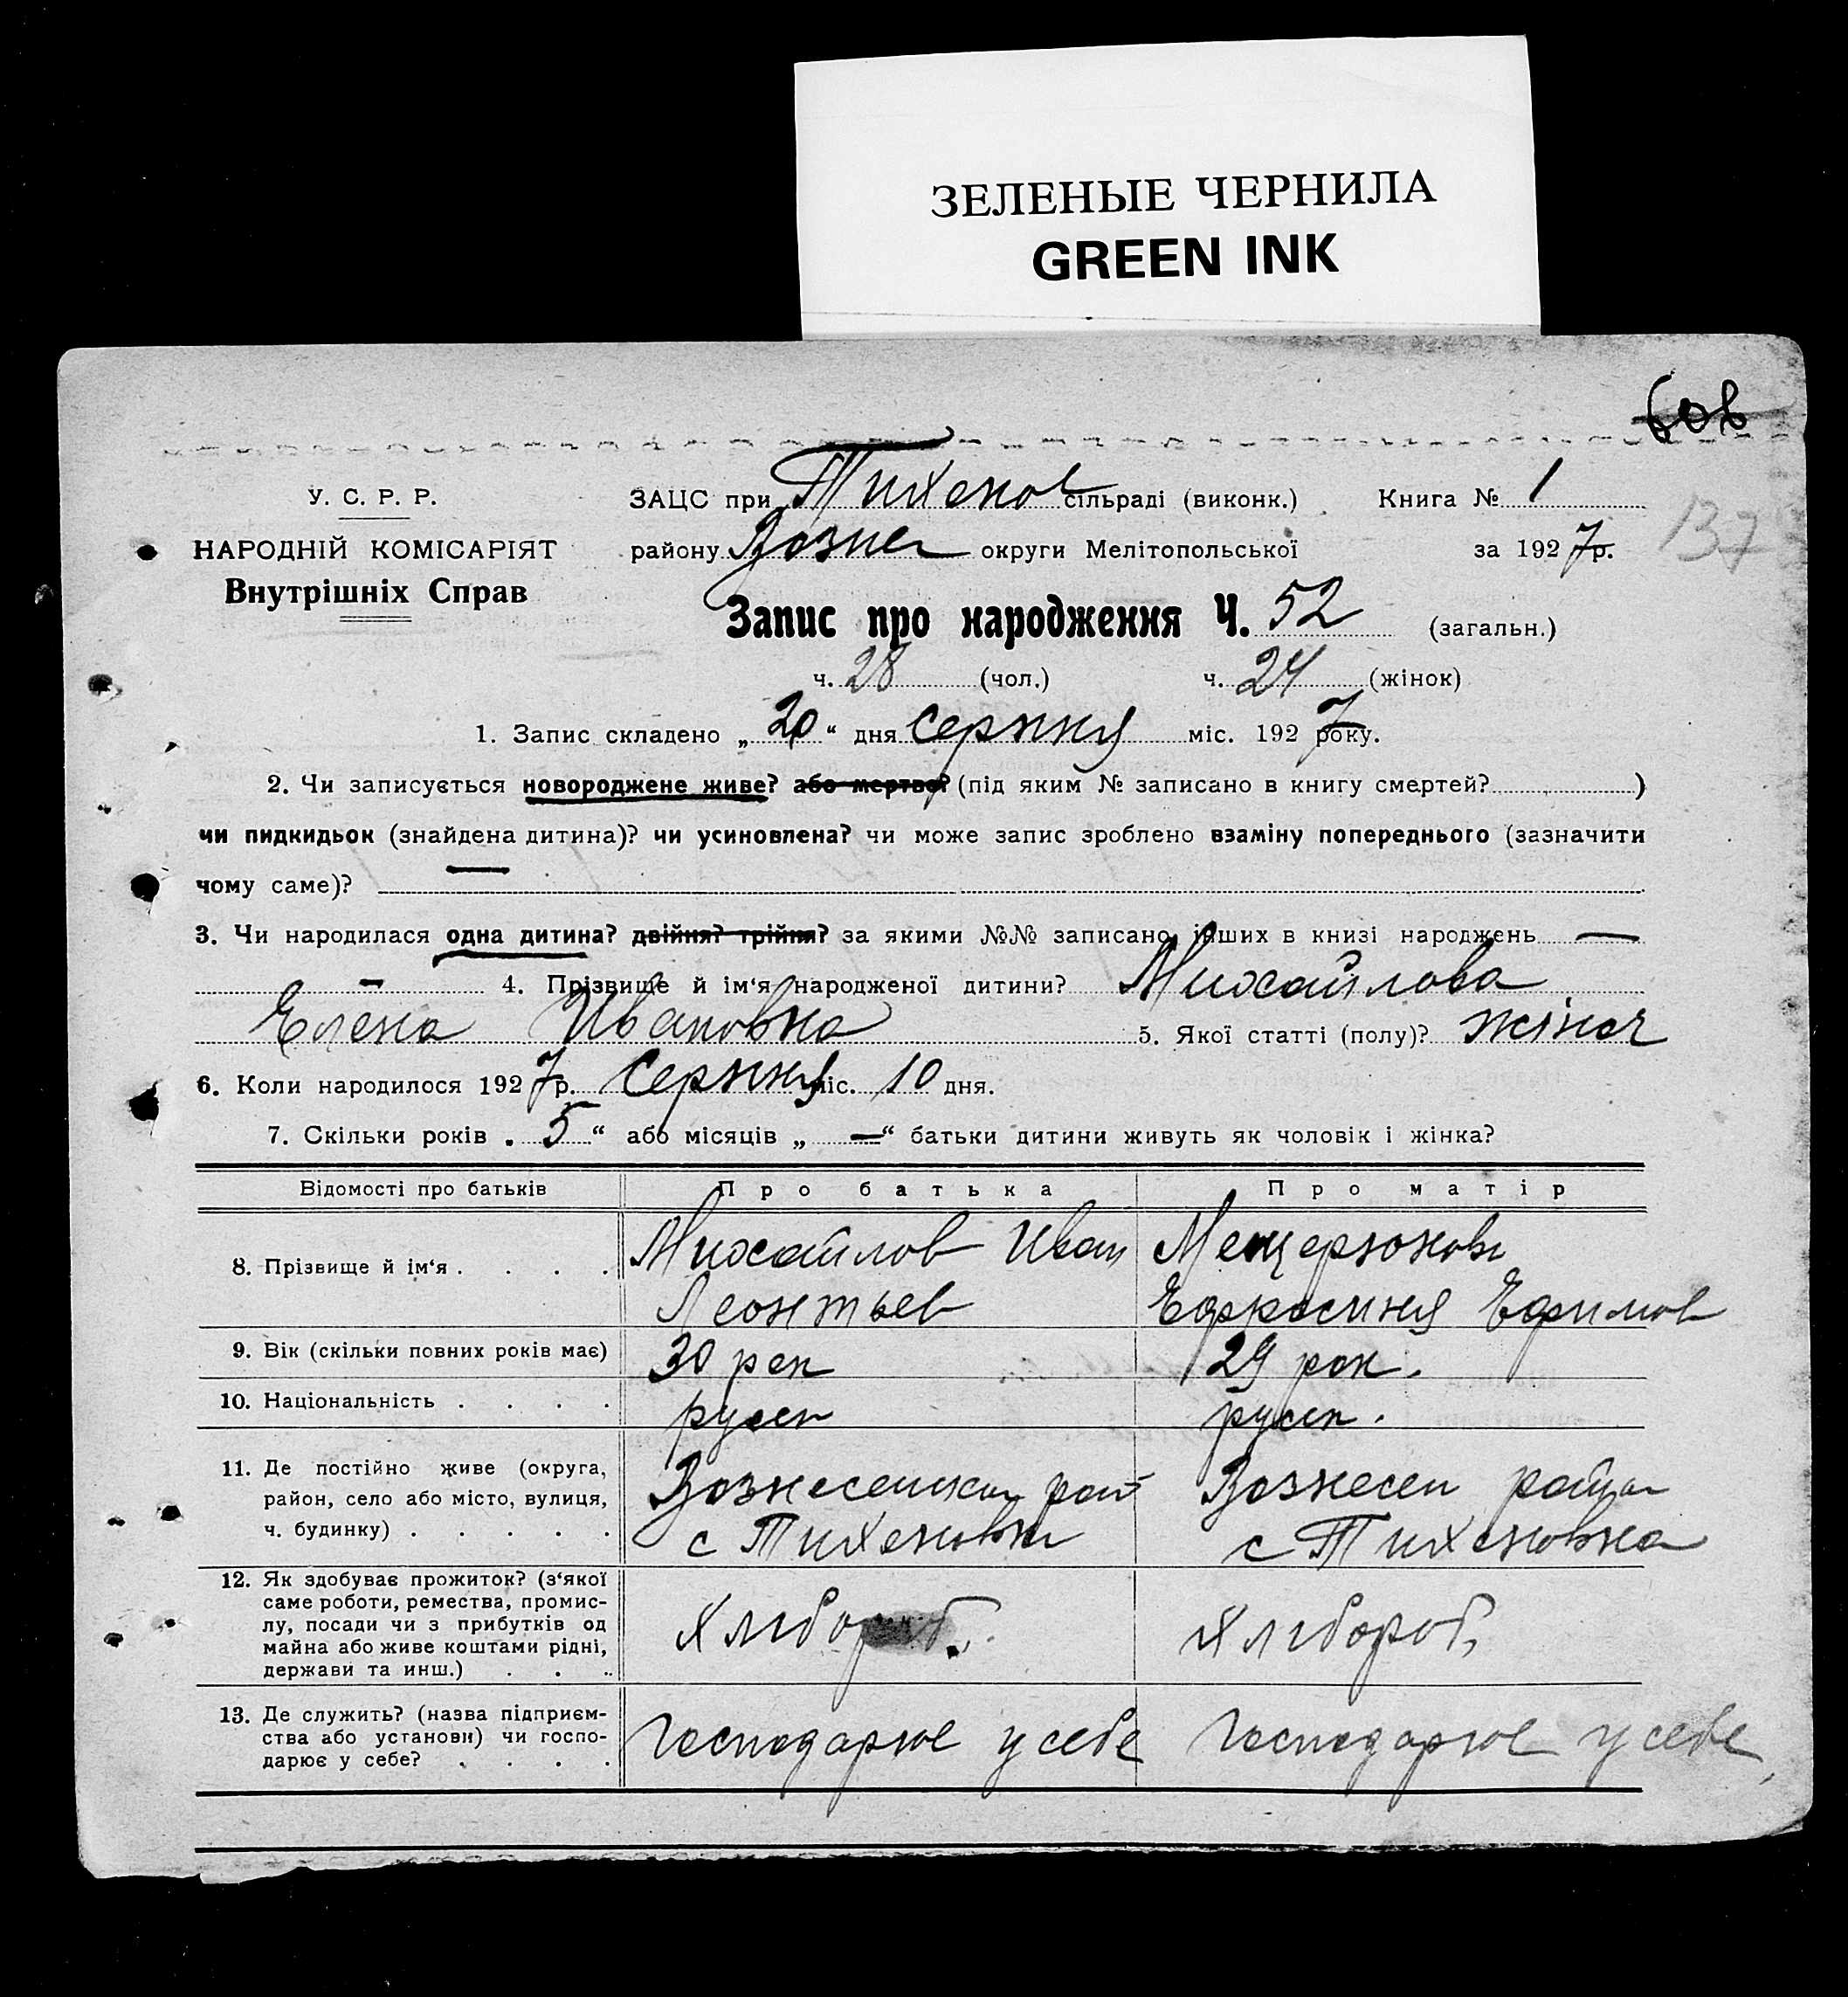 ЗЕЛЕНЫЕ ЧЕРНИЛА
GREEN INK
У. С. Р. Р.
ЗАЦС при Тихенов сільраді (виконк.) Книга № 1
137
НАРОДНІЙ КОМІСАРІЯТ
району Вознес округи Мелітопольської за 1927 р.
Внутрішніх Справ
Запис про народження Ч. 52 (загальн.)
ч. 28 (чол.) ч. 24 (жінок)
1. Запис складено „20“ дня серпня міс. 1927 року.
2. Чи записується новороджене живе? або мертве? (під яким № записано в книгу смертей? )
чи пидкидьок (знайдена дитина)? чи усиновлена? чи може запис зроблено взаміну попереднього (зазначити
чому саме)?
3. Чи народилася одна дитина? двійня? трійня? за якими №№ записано інших в книзі народжень —
— 4. Прізвище й ім‘я народженої дитини? Михайлова
Елена Ивановна 5. Якої статті (полу)? жіноч
6. Коли народилося 1927 р. Серпня міс. 10 дня.
7. Скільки років „5“ або місяців „—“ батьки дитини живуть як чоловік і жінка?
Відомості про батьків Про батька Про матір
8. Прізвище й ім‘я . . . . Михайлов Иван Леонтьев Мещерюкова Ефросиния Ефимов
9. Вік (скільки повних років має) 30 рок 29 рок.
10. Національність . . . . руск руск.
11. Де постійно живе (округа,
район, село або місто, вулиця,
ч. будинку) . . . . .
Вознесенском рай
с Тихеновки
Вознесен район
с Тихеновка
12. Як здобуває прожиток? (з‘якої
саме роботи, ремества, промис-
лу, посади чи з прибутків од
майна або живе коштами рідні,
держави та инш.) . . .
Хлібороб.
Хлібороб,
13. Де служить? (назва підприєм-
ства або установи) чи госпо-
дарює у себе? . . . .
Господарює у себе
Господарює у себе